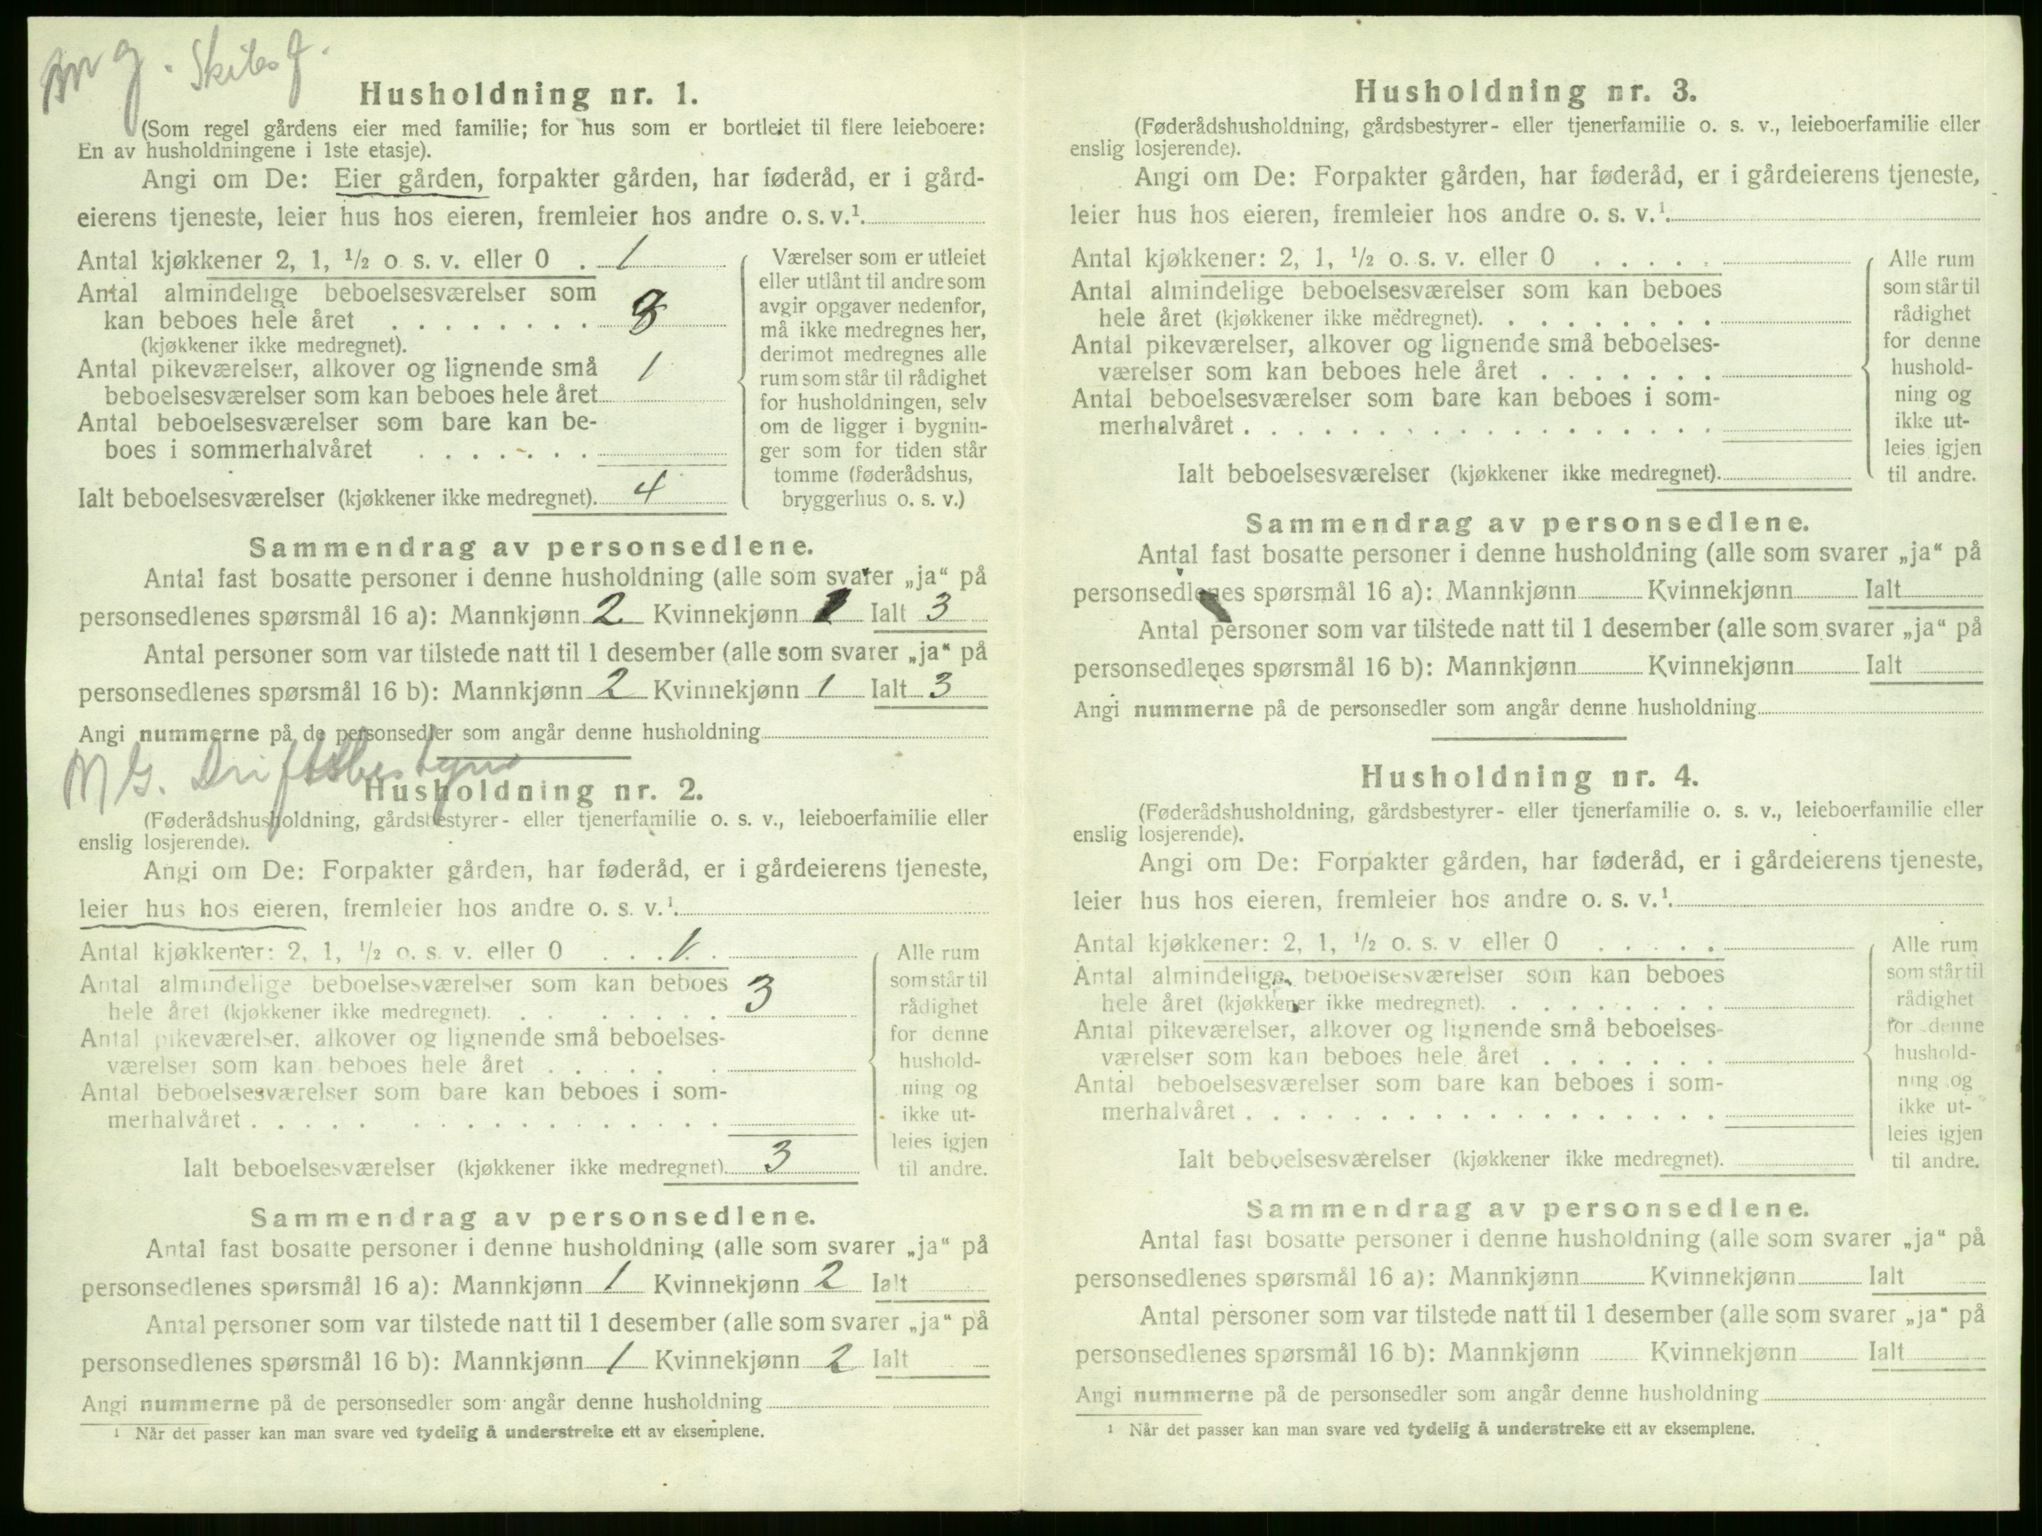 Husholdning nr. 1.
(Som regel gårdens eier med familie; for hus som er bortleiet til flere leieboere:
En av husholdningene i 1ste etasje).
Angi om De: Eier gården, forpakter gården, har føderåd, er i gård-
eierens tjeneste, leier hus hos eieren, fremleier hos andre o. s. v.¹.
Antal kjøkkener 2, 1, ½ o s. v. eller 0 . 1
Antal almindelige beboelsesværelser som
kan beboes hele året . . . . . . . . 3
(kjøkkener ikke medregnet).
Antal pikeværelser, alkover og lignende små 1
beboelsesværelser som kan beboes hele året
Antal beboelsesværelser som bare kan be-
boes i sommerhalvåret . . . . . . .
Ialt beboelsesværelser (kjøkkener ikke medregnet). 4
Værelser som er utleiet
eller utlånt til andre som
avgir opgaver nedenfor,
må ikke medregnes her,
derimot medregnes alle
rum som står til rådighet
for husholdningen, selv
om de ligger i bygnin-
ger som for tiden står
tomme (føderådshus,
bryggerhus o. s. v.)
Sammendrag av personsedlene.
Antal fast bosatte personer i denne husholdning (alle som svarer „ja" på
personsedlenes spørsmål 16 a): Mannkjønn 2 Kvinnekjønn 1 Ialt 3
Antal personer som var tilstede natt til 1 desember (alle som svarer „ja" på
personsedlenes spørsmål 16 b): Mannkjønn 2 Kvinnekjønn 1 Ialt 3
Angi nummerne på de personsedler som angår denne husholdning
M G. Driftsbestyrer
Husholdning nr. 2.
(Føderådshusholdning, gårdsbestyrer- eller tjenerfamilie o. s. v., leieboerfamilie eller
enslig losjerende).
Angi om De: Forpakter gården, har føderåd, er i gårdeierens tjeneste,
leier hus hos eieren, fremleier hos andre o. s. v.¹.
Antal kjøkkener: 2, 1, ½ o. s. v. eller 0 . . . 1
Antal almindelige beboelsesværelser som kan beboes 3
hele året (kjøkkener ikke medregnet). . . . . . . .
Antal pikeværelser, alkover og lignende små beboelses-
værelser som kan beboes hele året . . . . .
Antal beboelsesværelser som bare kan beboes i som-
merhalvåret . . . . . . . . . . . . . . . . .
Ialt beboelsesværelser (kjøkkener ikke medregnet). 3
Alle rum
som står til
rådighet
for denne
hushold-
ning og
ikke ut-
leies igjen
til andre.
Sammendrag av personsedlene.
Antal fast bosatte personer i denne husholdning (alle som svarer „ja" på
personsedlenes spørsmål 16 a): Mannkjønn 1 Kvinnekjønn 2 Ialt
Antal personer som var tilstede natt til 1 desember (alle som svarer „ja" på
personsedlenes spørsmål 16 b): Mannkjønn 1 Kvinnekjønn 2 Ialt
Angi nummerne på de personsedler som angår denne husholdning
¹ Når det passer kan man svare ved tydelig å understreke ett av eksemplene.
Husholdning nr. 3.
(Føderådshusholdning, gårdsbestyrer- eller tjenerfamilie o. s. v., leieboerfamilie eller
enslig losjerende).
Angi om De: Forpakter gården, har føderåd, er i gårdeierens tjeneste,
leier hus hos eieren, fremleier hos andre o. s. v.¹.
Antal kjøkkener: 2, 1, ½ o. s. v. eller 0 . . . . .
Antal almindelige beboelsesværelser som kan beboes
hele året (kjøkkener ikke medregnet). . . . . . . . .
Antal pikeværelser, alkover og lignende små beboelses-
værelser som kan beboes hele året . . . . . . .
Antal beboelsesværelser som bare kan beboes i som-
merhalvåret . . . . . . . . . . . . . . . . . .
Ialt beboelsesværelser (kjøkkener ikke medregnet).
Alle rum
som står til
rådighet
for denne
hushold-
ning og
ikke ut-
leies igjen
til andre.
Sammendrag av personsedlene.
Antal fast bosatte personer i denne husholdning (alle som svarer „ja" på
personsedlenes spørsmål 16 a): Mannkjønn Kvinnekjønn Ialt
Antal personer som var tilstede natt til 1 desember (alle som svarer „ja" på
personsedlenes spørsmål 16 b): Mannkjønn Kvinnekjønn Ialt
Angi nummerne på de personsedler som angår denne husholdning
Husholdning nr. 4.
(Føderådshusholdning, gårdsbestyrer- eller tjenerfamilie o. s. v., leieboerfamilie eller
enslig losjerende).
Angi om De: Forpakter gården, har føderåd, er i gårdeierens tjeneste,
leier hus hos eieren, fremleier hos andre o. s. v.¹.
Antal kjøkkener: 2, 1, ½ o. s. v eller 0 . . . . .
Antal almindelige beboelsesværelser som kan beboes
hele året (kjøkkener ikke medregnet). . . . . . . . .
Antal pikeværelser, alkover og lignende små beboelses-
værelser som kan beboes hele året . . . . . . .
Antal beboelsesværelser som bare kan beboes i som-
merhalvåret . . . . . . . . . . . . . . . . . .
Ialt beboelsesværelser (kjøkkener ikke medregnet).
Alle rum
som står til
rådighet
for denne
hushold-
ning og
ikke ut-
leies igjen
til andre.
Sammendrag av personsedlene.
Antal fast bosatte personer i denne husholdning (alle som svarer „ja" på
personsedlenes spørsmål 16 a): Mannkjønn Kvinnekjønn Ialt
Antal personer som var tilstede natt til 1 desember (alle som svarer „ja" på
personsedlenes spørsmål 16 b): Mannkjønn Kvinnekjønn Ialt
Angi nummerne på de personsedler som angår denne husholdning
¹ Når det passer kan man svare ved tydelig å understreke ett av eksemplene.